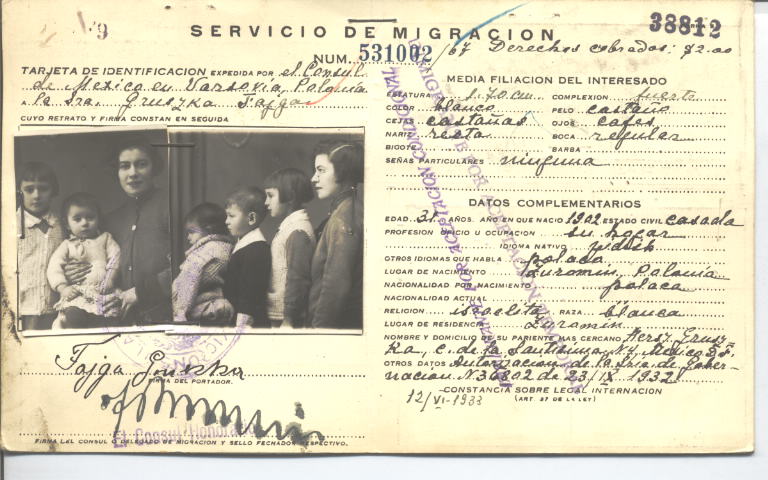 38812
SERVICIO DE MIGRACION
NUM. 531002 /67 Derechos cobrados: $2.00
TARJETA DE IDENTIFICACION EXPEDIDA POR el Consul
de Mexico en Varsovia, Polonia
A la Sra. Gruszka Fajga
CUYO RETRATO Y FIRMA CONSTAN EN SEGUIDA
Fajga Gruszka
FIRMA DEL PORTADOR.
El Consul Honorario
FIRMA DEL CONSUL O DELEGADO DE MIGRACION Y SELLO FECHADOR RESPECTIVO.
MEDIA FILIACION DEL INTERESADO
ESTATURA 1.70 cm COMPLEXION fuerte
COLOR blanco PELO castaño
CEJAS castañas OJOS cafes
NARIZ recta BOCA regular
BIGOTE BARBA
SEÑAS PARTICULARES ninguna
DATOS COMPLEMENTARIOS
EDAD 31 AÑOS. AÑO EN QUE NACIO 1902 ESTADO CIVIL casada
PROFESION OFICIO U OCUPACION su hogar
IDIOMA NATIVO yidisch
OTROS IDIOMAS QUE HABLA polaco
LUGAR DE NACIMIENTO Zuromin, Polonia
NACIONALIDAD POR NACIMIENTO polaca
NACIONALIDAD ACTUAL
RELIGION israelita RAZA blanca
LUGAR DE RESIDENCIA Zuromin
NOMBRE Y DOMICILIO DE SU PARIENTE MAS CERCANO Hersz Grusz-
ka, c. de la Santisima, N. Mexico D.F.
OTROS DATOS Autorizacion de la Sria de Gober-
nacion N. 36802 de 23/IX 1932
CONSTANCIA SOBRE LEGAL INTERNACION
(ART. 37 DE LA LEY)
12/VI-1933